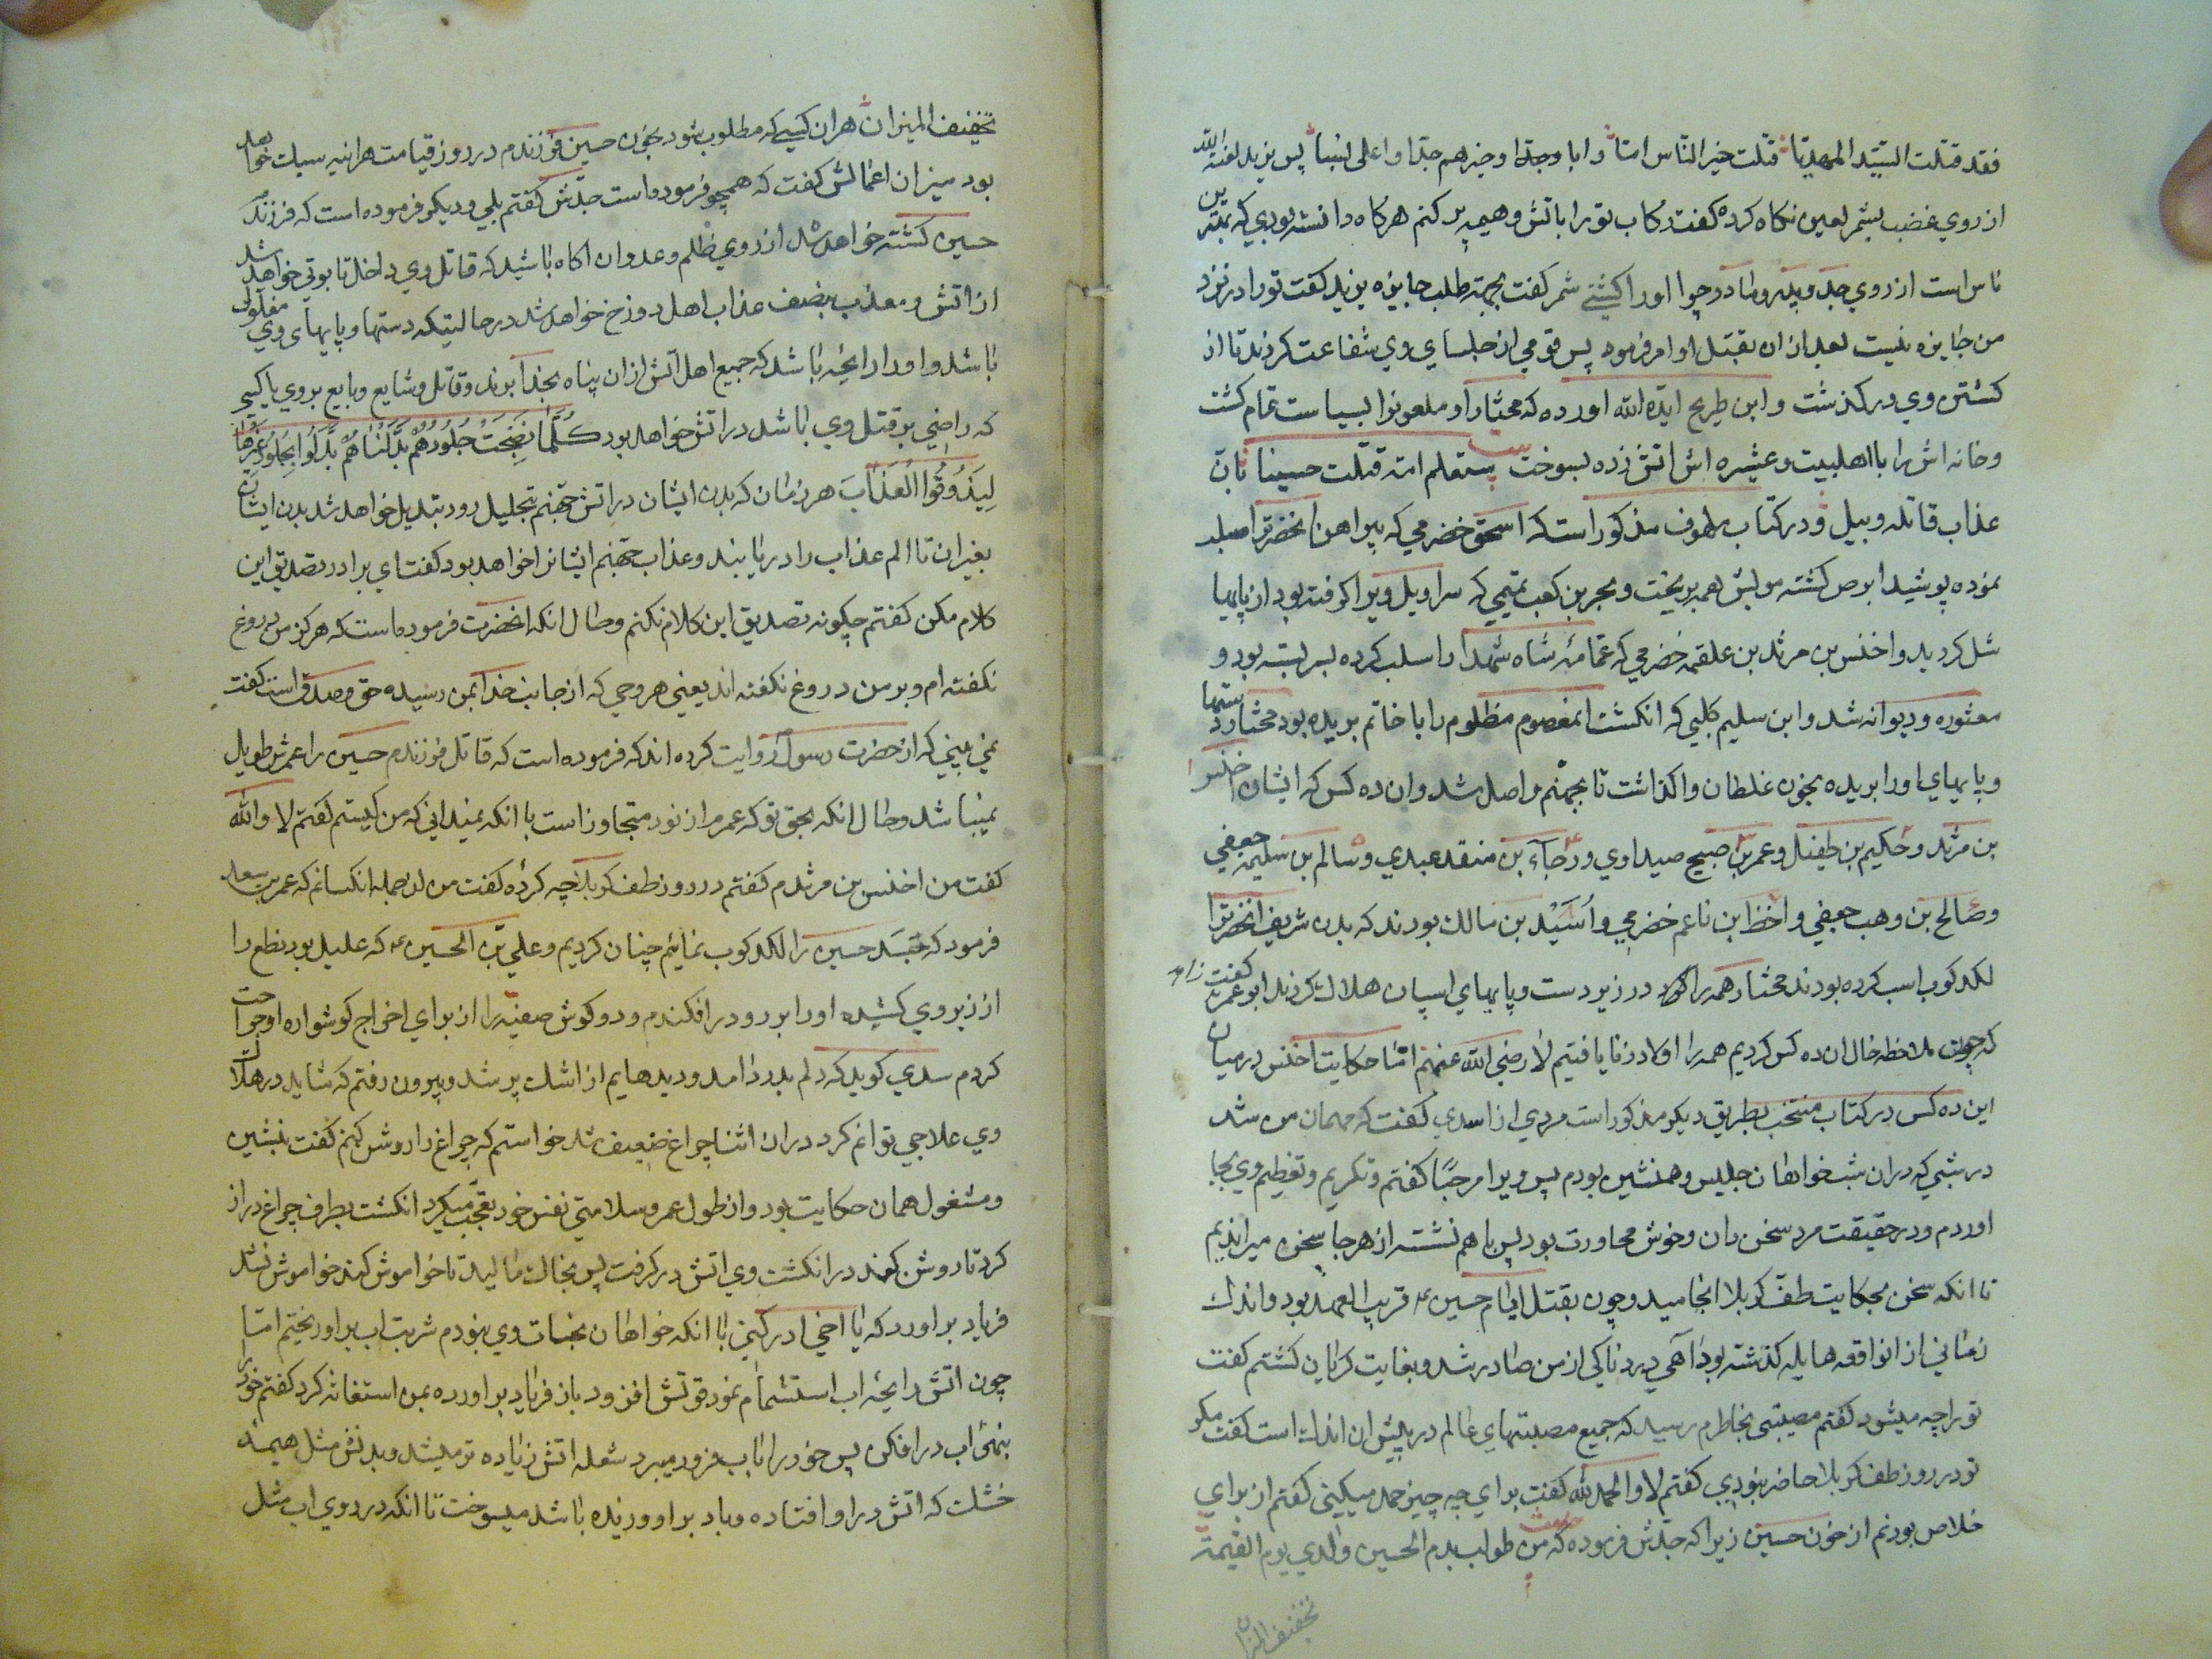 فقد قتلت السّيّد المهديّا قتلت خير النّاس امّا و ابا وجدّا و خيرهم جدّا و اعلی نسبا پس يزيد لعنه الله
از روي غضب بشمر لعين نكاه كرده كفت ركاب تو را باتش و هيمه پر كنم هركاه دانسته بودي كه بهترين
ناس است از روي جد و پدر و مادر چرا او را كشتي شمر كفت بجهة طلب جايزه يزيد كفت تو را در نزد
من جايزه نيست بعد از ان بقتل او امر فرمود پس قومي از جلساي وي شفاعت كردند تا از
كشتن وي در كذشت و ابن طريح ايّده الله اورده كه مختار او ملعونرا بسياست تمام كشت
و خانه اش را با اهلبيت و عشيره اش اتش زده بسوخت ستعلم امة قتلت حسينا بان
عذاب قاتله وبيل و در كتاب ملهوف مذكور است كه اسحق خضرمي كه پيراهن انحضرترا سلب
نموده پوشيد ابرص كشته مويش همه بريخت و بحر بن كعب تميمي كه سراويل ويرا كرفته بود از پايها
شل كرديد و اخنس بن مرثد بن علقمه خضرمي كه عمّامهٔ شاه شهدا را سلب كرده بسر بسته بود و
معتوره و ديوانه شد و ابن سليم كلبي كه انكشت انمعصوم مظلوم را با خاتم بريده بود مختار دستها
و پايهاي او را بريده بخون غلطان واكذاشت تا بجهنّم واصل شد و ان ده كس كه ايشان اخنس
بن مرثد و حكيم بن طفيل و عمر بن صبيح صيداوي و رجاء بن منقد عبدي و سالم بن سليمه جعفي
و صالح بن وهب جعفي و اخظ ابن ناعم خضرمي و اُسَيْد بن مالك بودند كه بدن شريف انحضرترا
لكدكوب اسب كرده بودند مختار همه را در زير دست و پايهاي اسپان هلاك كردند ابو عمر كفت زاهد
كه چون ملاحظه حال ان ده كس كرديم همه را اولاد زنا يافتيم لا رضي الله عنهم امّا حكايت اخنس در ميان
اين ده كس در كتاب منتخب بطريق ديكر مذكور است مردي از اسدي كفت كه مهمان من شد
در شبي كه دران شب خواهان جليس و همنشين بودم پس ويرا مرحبًا كفتم و تكريم و تعظيم وي بجا
اوردم و در حقيقت مرد سخن دان و خوش محاورت بود پس با هم نشسته از هر جا سخن ميرانديم
تا انكه سخن بحكايت طفّ كربلا انجاميد و چون بقتل امام حسين ع قريب العهد بود و اندك
زماني از انواقعه هايله كذشته بود آهي دردناكي از من صادر شد و بغايت كرايان كشتم كفت
تو را چه ميشود كفتم مصيبتي بخاطرم رسيد كه جميع مصيبتهاي عالم در پيش ان اندك است كفت مكر
تو در روز طف كربلا حاضر بودي كفتم لا و الحمد لله كفت براي چه چيز حمد ميكيني كفتم از براي
خلاص بودنم از خون حسين زيرا كه جدّش فرموده كه من طولب بدم الحسين ولدي يوم القيمة
تخفيف الميزان
تخفيف الميزان هر ان كسي كه مطلوب شود بخون حسين فرزندم در روز قيامت هر اينه سبك خواهد
بود ميزان اعمالش كفت كه همچو فرموده است جدّش كفتم بلي و ديكر فرموده است كه فرزندم
حسين كشته خواهد شد از روي ظلم و عدوان اكاه باشيد كه قاتل وي داخل تابوتي خواهد شد
از اتش و معذب بنصف عذاب اهل دوزخ خواهد شد در حالتيكه دستها و پايهاي وي مغلول
باشد و او را رايحه باشد كه جميع اهل آتش از ان پناه بخدا برند و قاتل و شايع و بايع بر وي يا كسي
كه راضي بر قتل وي باشد در اتش خواهد بود كُلَّمَا نَضِجَتْ جُلُودُهُمْ بَدَّلْنَاهُمْ جُلُودًا غَيْرَهَا
لِيَذُوقُوا الْعَذَابَ هر زمان كه بدن ايشان در اتش جهنم بتحليل رود تبديل خواهد شد بدن ايشان
بغير ان تا الم عذاب را دريابند و عذاب جهنم ايشانرا خواهد بود كفت اي برادر تصديق اين
كلام مكن كفتم چكونه تصديق اين كلام نكنم و حال انكه انحضرت فرموده است كه هركز من دروغ
نكفته ام و بر من دروغ نكفته اند يعني هر وحي كه از جانب خدا بمن رسيده حق و صدق است كفت
نمي بيني كه از حضرت رسول روايت كرده اند كه فرموده است كه قاتل فرزندم حسين را عمرش طويل
نميباشد و حال انكه بحق تو كه عمرم از نود متجاوز است با انكه نميداني كه من كيستم كفتم لا والله
كفت من اخنس بن مرثدم كفتم در روز طف كربلا چه كردهٔ كفت من از جمله انكسانم كه عمر بن سعد
فرمود كه جسد حسين را لكدكوب نمائيم چنان كرديم و علي بن الحسين ع كه عليل بود نطع را
از زير وي كشيده او را برو در افكندم و دو كوش صفيّه را از براي اخراج كوشواره او جراحت
كردم سدي كويد كه دلم بدرد امد و ديدهايم از اشك پر شد و بيرون رفتم كه شايد در هلاك
وي علاجي توانم كرد دران اثنا چراغ ضعيف شد خواستم كه چراغ را روشن كنم كفت بنشين
و مشغول همان حكايت بود و از طول عمر و سلامتي نفس خود تعجّب ميكرد انكشت بطرف چراغ دراز
كرد تا روشن كند در انكشت وي اتش در كرفت پس بخاك ماليد تا خواموش كند خواموش نشد
فرياد بر اورد كه يا اخي ادركني با انكه خواهان نجات وي نبودم شربت اب بر او ريختم امّا
چون اتش رايحهٔ اب استشمام نمود قوتش افزود باز فرياد بر اورده بمن استغاثه كرد كفتم خود را
بنهر اب در افكن پس خود را باب فرود ميبرد شعله اتش زياده تر ميشد و بدنش مثل هيمهٔ
خشك كه اتش در او افتاده و باد بر او وزيده باشد ميسوخت تا انكه در روي اب مثل